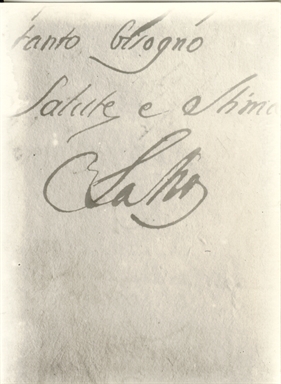 tanto bisogno
Salute, e Stima